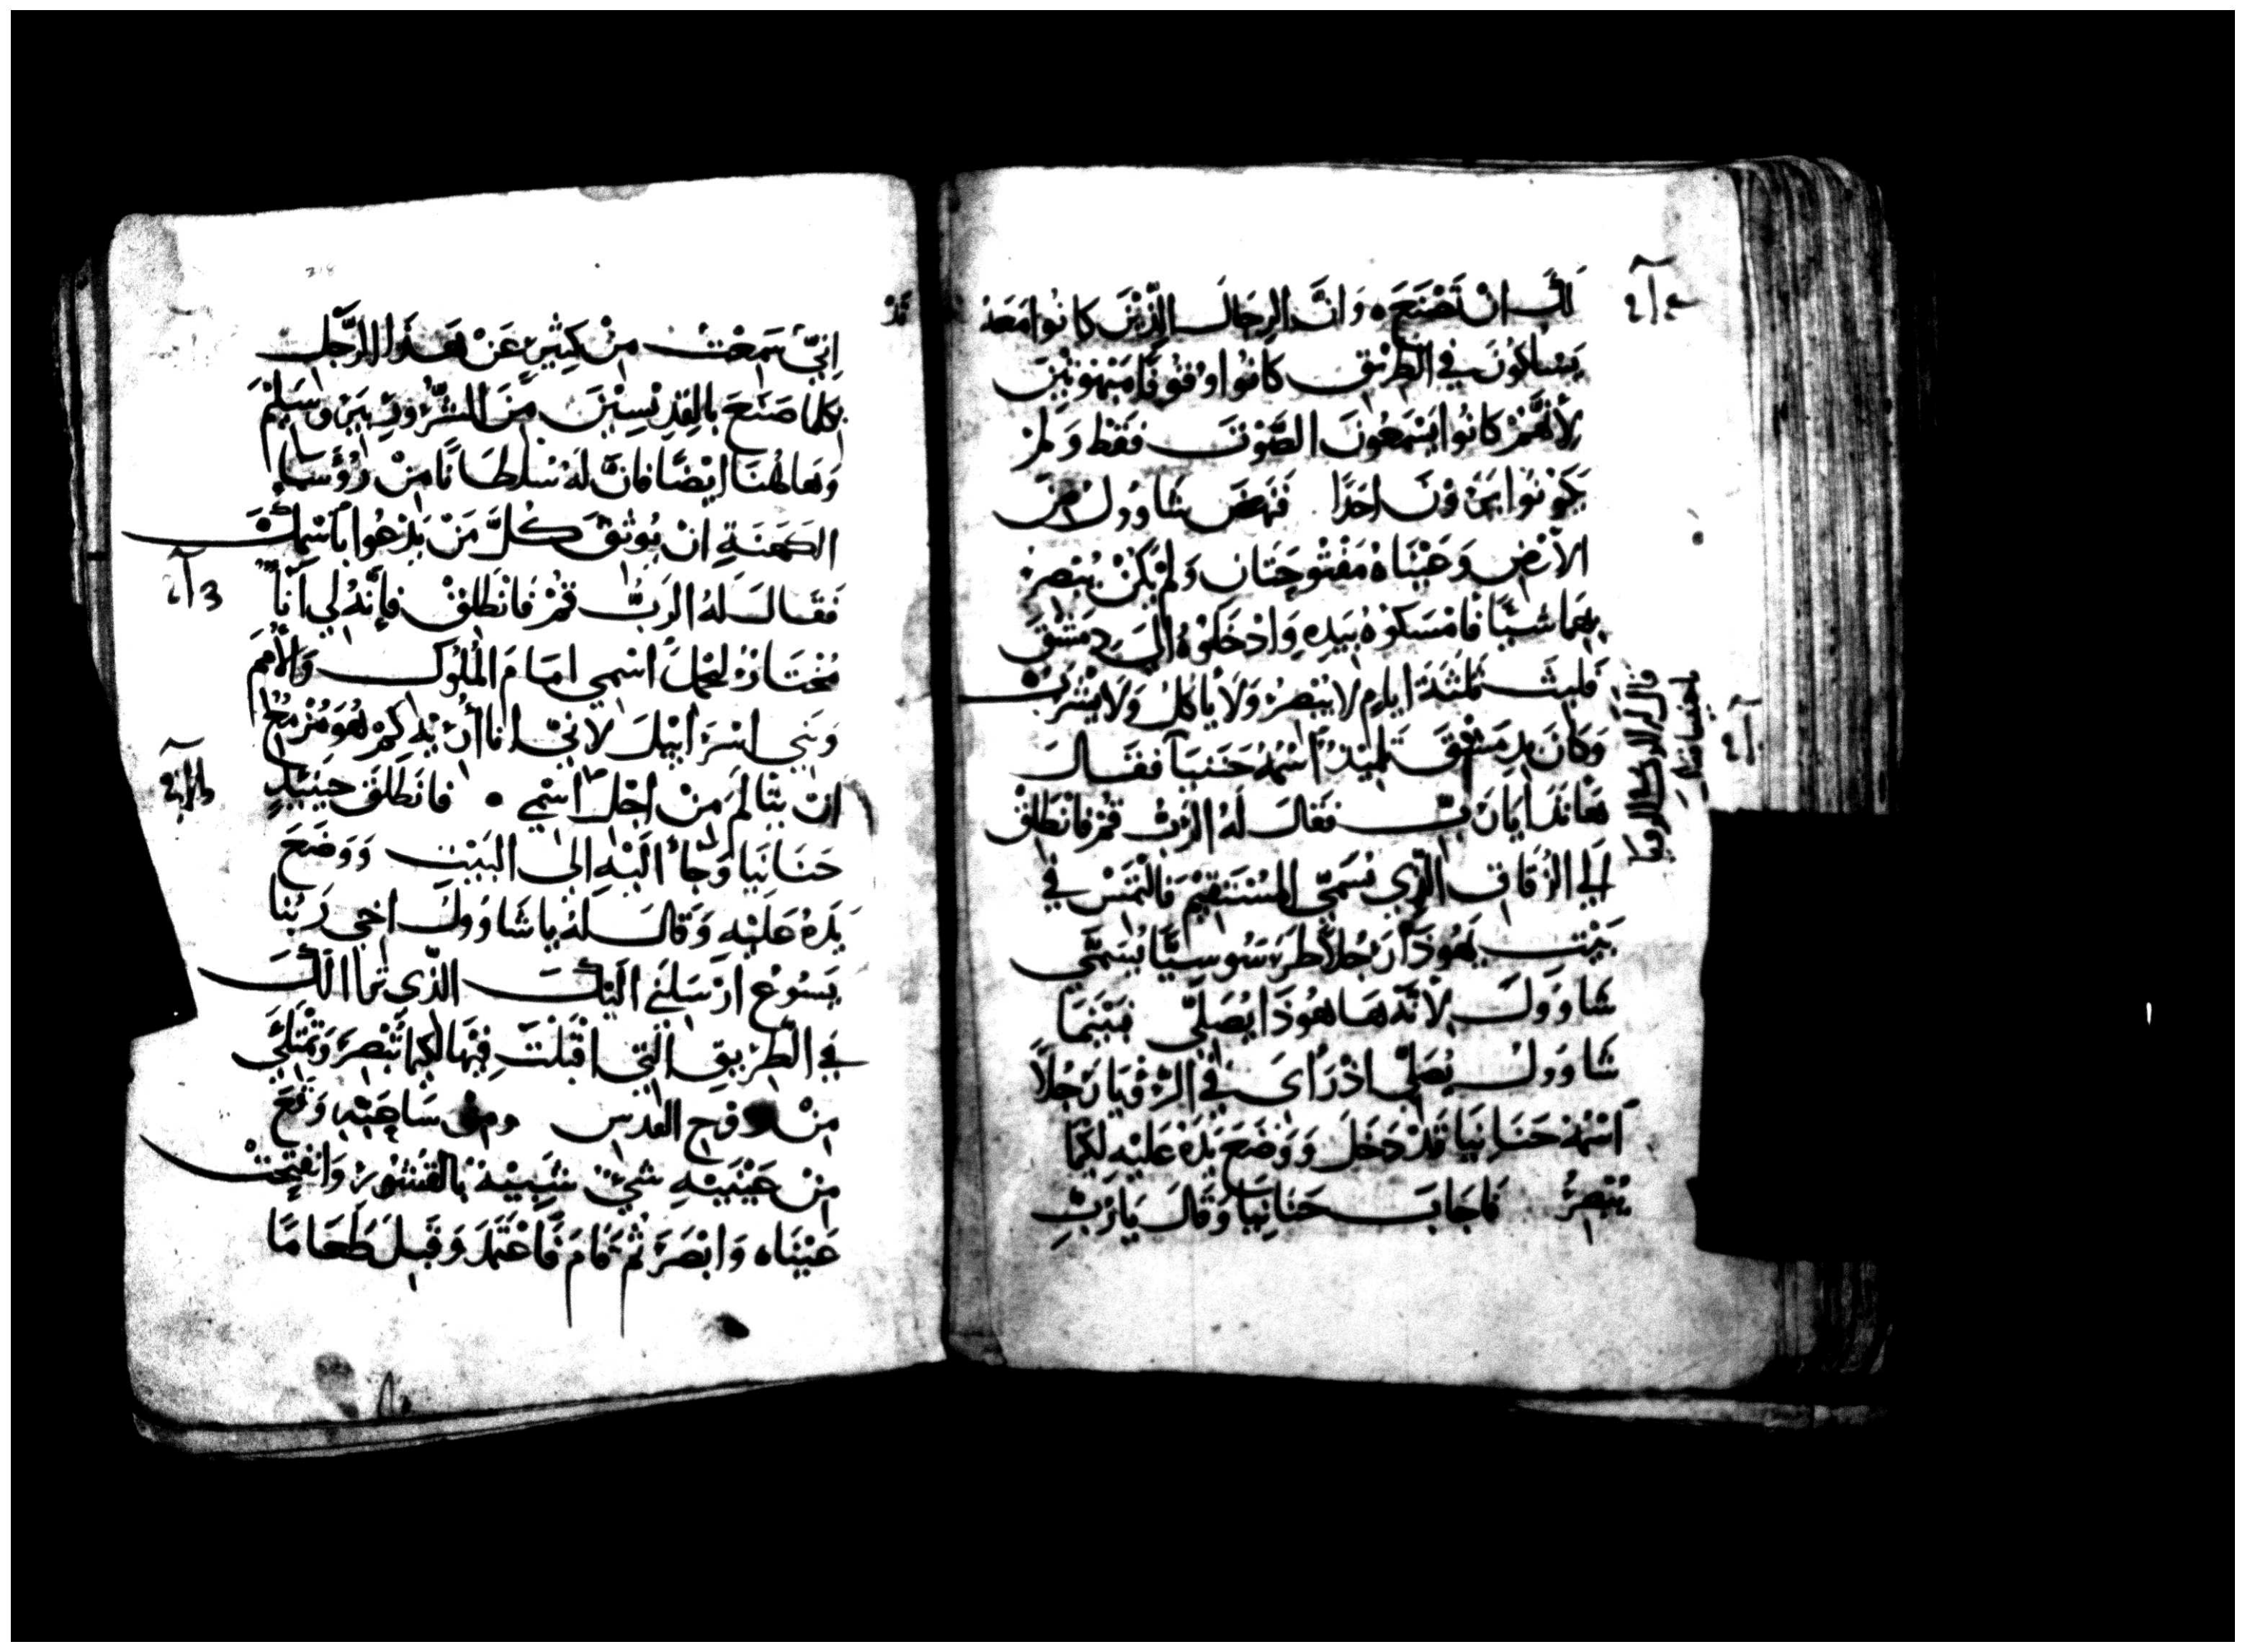 لَكَ انْ تَصْنَعَ ۰ وَانَّ الرِجَالَ الَّذِيْنَ كَانُوا مَعَهُ
يَسْلكُونَ في الطَرِيْقِ كَانُوا وُقُوفًا مَبْهُوتِيْنَ
لِأَنَّهُمْ كَانُوا يَسْمَعُونَ الصَّوْتَ فَقَطْ وَلَمْ
يَكُوْنُوا يَرَوْنَ احَدًا فَنَهَضَ شَاوُولُ مِنَ
الأَرْضِ وَعَيْنَاهُ مَفْتُوحَتَانِ وَلَمْ يَكُنْ يُبْصِرُ
بِهِمَا شَيْئًا فَامْسَكُوهُ بِيَدِهِ وَادْخَلُوْهُ الَى دِمَشْقَ
فَلَبِثَ ثَلَثَةَ ايَامٍ لا يُبْصِرُ وَلَا يَاكلُ وَلَا يَشْرَبُ
وَكَانَ بِدِمَشْقَ تَلمِيْذٌ اسْمُهُ حَنَنيَا فَقَالَ
هَانَذَا يَا رَبِّ فَقَالَ لَهُ الرَّبُّ قُمْ فَانْطَلِقْ
الَى الزُقَاقِ الَّذِي يُسَمَّى المُسْتَقِيْمَ فَالتَمِسْ في
بَيْتِ يَهُوذَا رَجُلاً طَرْسُوسيًّا يُسَمَّى
شَاوَوُلَ لِأَنَّهُ هَا هُوَذَا يُصَلّي فَبَيْنَمَا
شَاوَوُلُ يُصَلّي اذْ رَأى في الرُؤْيَا رَجُلاً
اسْمُهُ حَنَانِيَا قَدْ دَخَلَ وَوَضَعَ يَدَهُ عَلَيْهِ لِكَيْمَا
يُبْصِرُ فَاجَابَ حَنَانِيَا وَقَالَ يَا رَبِّ
قَدْ
انِّي سَمِعْتُ مِنْ كَثِيْرٍ عَنْ هَذَا الرَّجُلِ
بِكُلمَا صَنَعَ بِالقِدِيْسِيْنَ مِنَ الشُرُورِ بِيَرُوسَلِيْمَ
وَهَاهُنَا ايْضًا فَانَّ لَهُ سُلطَانًا مِنْ رُؤَسَاءِ
الكَهَنَةِ انْ يُوثِقَ كُلَّ مَنْ يَدْعُوا بِاسْمِكَ
فَقَالَ لَهُ الرَبُّ قُمْ فَانْطَلِقْ فَإِنَّهُ لِي انَاءٌ
مُخْتَارٌ لِيَحْمِلَ اسْمِي امَامَ المُلُوكِ وَالأُمَمِ
وَبَنِي اسْرَائِيْلَ لانِّي انَا أُرِيْهِ كَمْ هُوَ مُزْمِعٌ
انْ يَتَالَّمَ مِنْ اجْلِ اسْمِي ۰ فَانْطَلَقَ حِيْنَئِذٍ
حَنَانِيَا وَجَاءَ الَيْهِ الى البَيْتِ وَوَضَعَ
يَدَهُ عَلَيْهِ وَقَالَ لَهُ يَا شَاوَوُلَ اخِي رَبُّنَا
يَسُوعُ ارْسَلَنِي الَيْكَ الَّذِي تَرَاءا لَكَ
في الطَّرِيقِ الَّتِي اقْبَلْتَ فِيْهَا لِكَيْمَا تُبْصِرَ وَتَمْتَلِئَ
مِنْ رُوْحِ القُدسِ وَمِنْ سَاعَتِهِ وَقَعَ
مِنْ عَيْنَيْهِ شَيْءٌ شَبِيْهٌ بِالقُشُوْرِ وَانْفَتَحَتْ
عَيْنَاهُ وَابْصَرَ ثُمَّ قَامَ فَاعْتَمَدَ وَقَبِلَ طَعَامًا